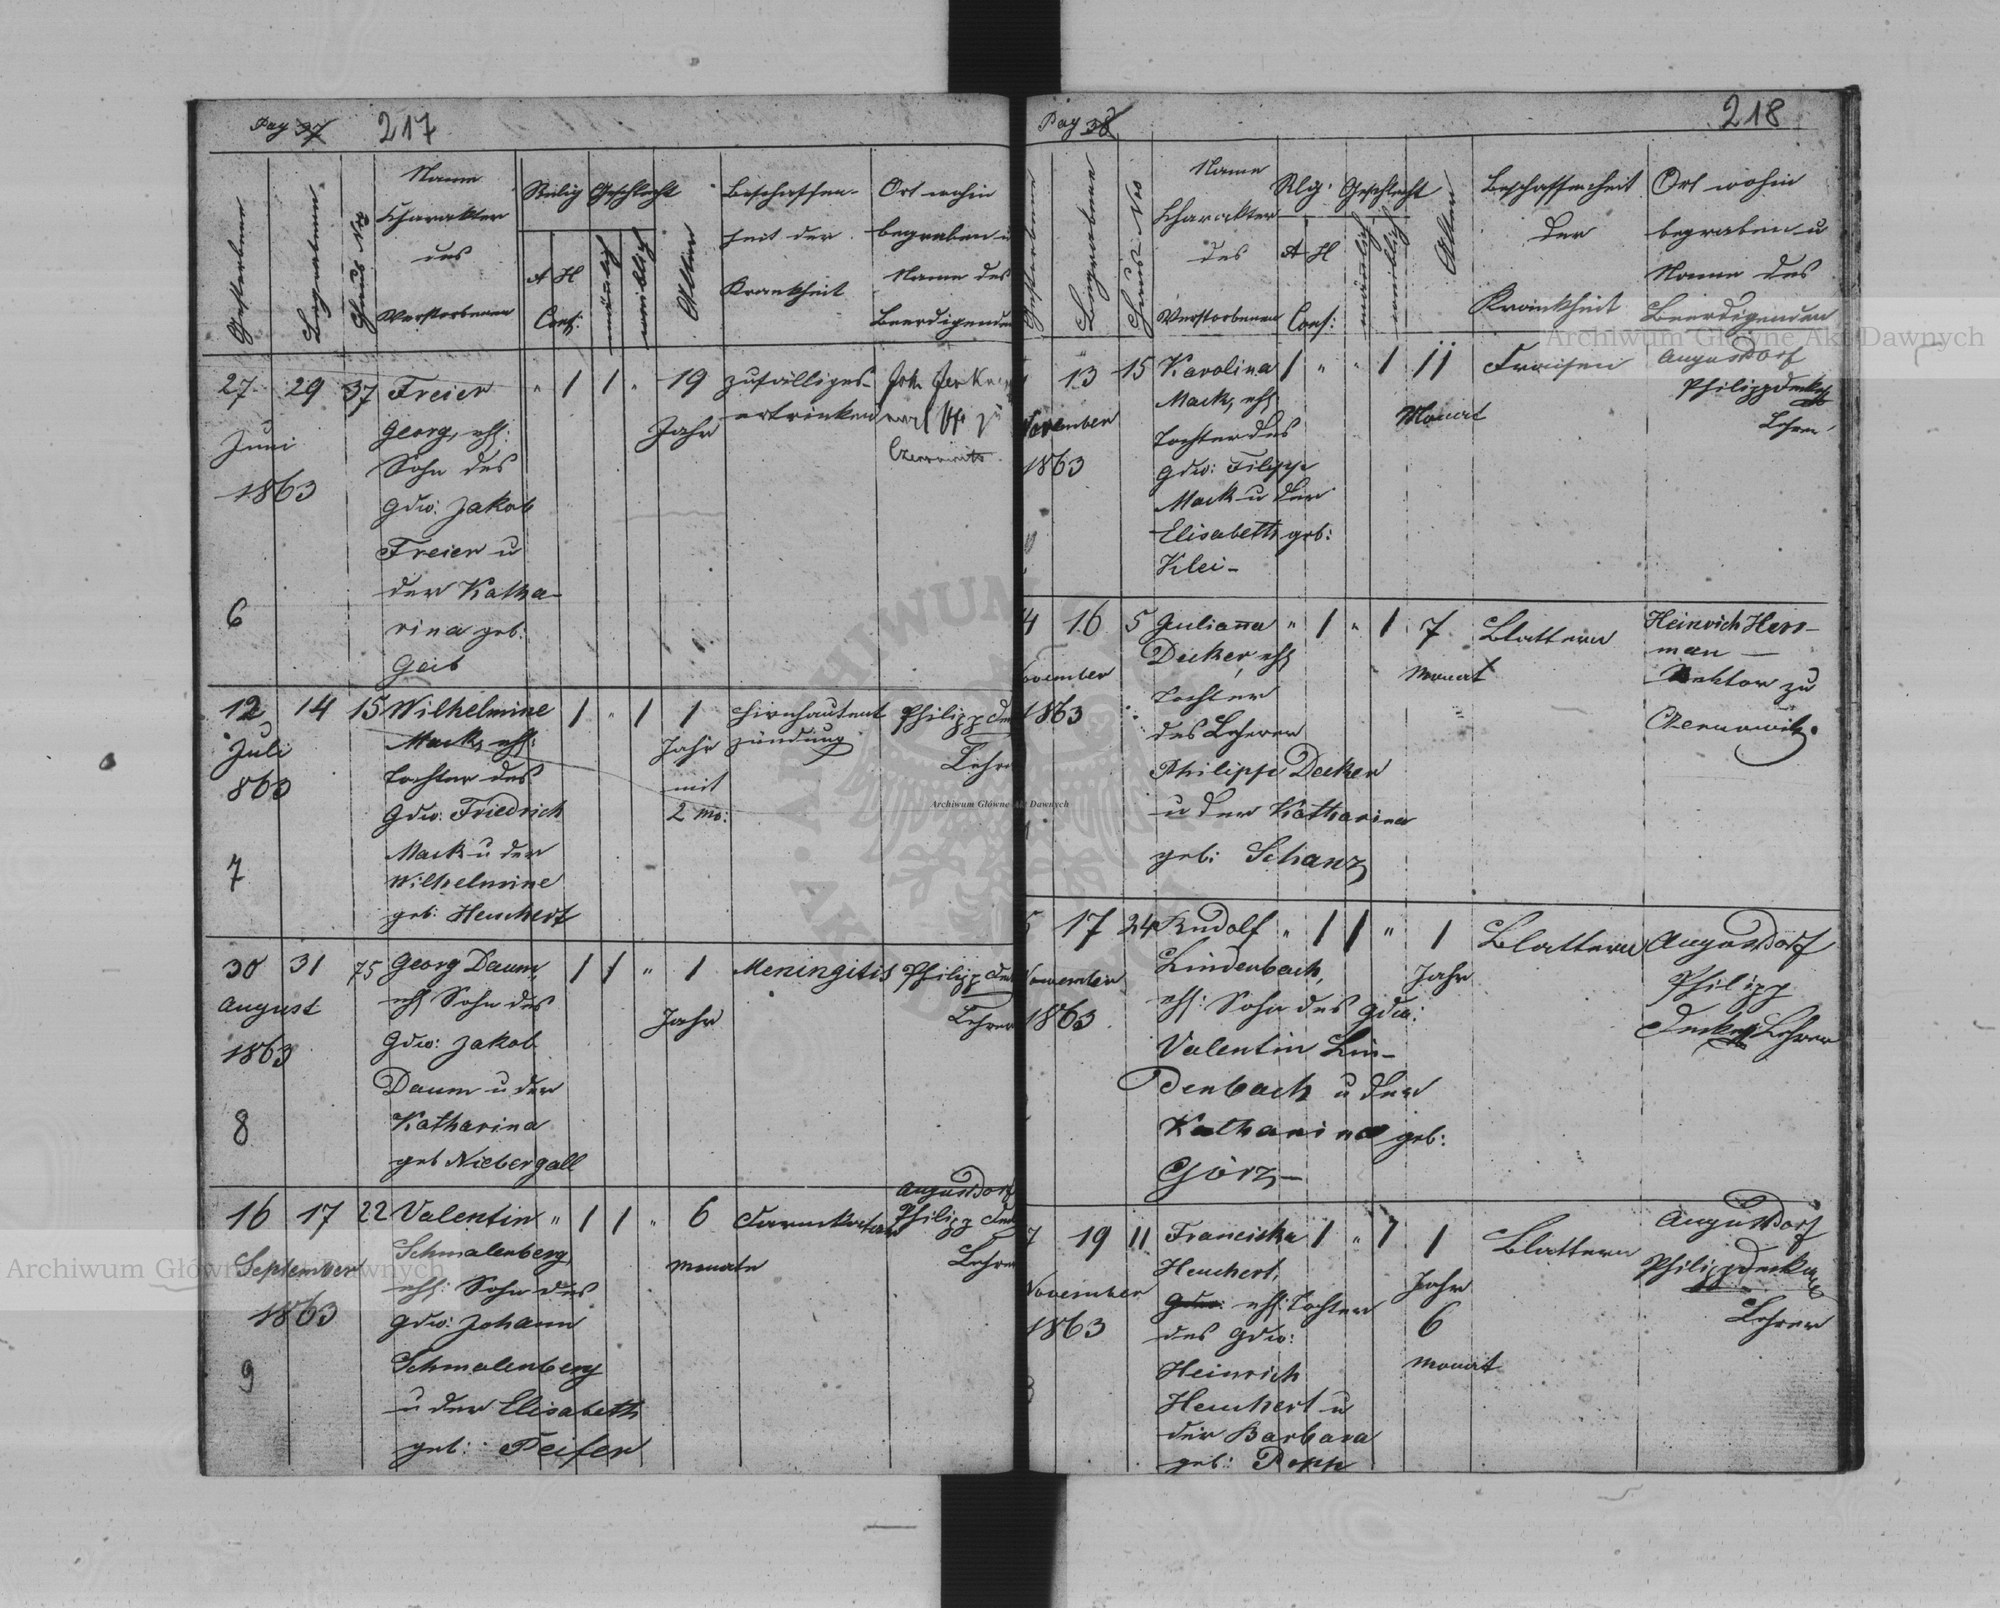 Pag 37 217
Gestorben
Begraben
Haus No
Name
Charakter
des
Verstorbenen
Relig
A H
Conf:
Geschlecht
männlich
weiblich
Alter
Beschaffen-
heit der
Krankheit
Ort wohin
begraben u
Name des
Beerdigenden
27 29 37 Freier " 1 1 " 19 zufälliges
Juni Georg, ehl: Jahr ertrinken
1863 Sohn des Czernowitz
Gdw: Jakob
Freier u
der Katha-
6 rina geb:
Geib
12 14 15 Wilhelmine 1 " 1 1 Hirnhautent Philipp
Juli Mack, ehl: Jahr zündung Lehrer
863 Tochter des mit
Gdw: Friedrich 2 Mo:
Mack u der
7 Wilhelmine
geb: Heuchert
30 31 75 Georg Daum, 1 1 " 1 Meningitis Philipp
August ehl Sohn des Jahr Lehrer
1863 Gdw: Jakob
Daum u der
8 Katharina
geb Niebergall
Augustdorf
16 17 22 Valentin " 1 1 " 6 Darmkatarr Philipp
September Schmalenberg Monate Lehrer
ehl: Sohn des
1863 Gdw: Johann
9 Schmalenberg
u der Elisabeth
geb: Peifer
Pag 38 218
Gestorbene
Begrabene
Haus No
Name
Charakter
des
Verstorbenen
Rlg:
A H
Conf:
Geschlecht
männlich
weiblich
Alter
Beschaffenheit
der
Krankheit
Ort wohin
begraben u
Name des
Beerdigenden
13 15 Karolina 1 " " 1 11 Fraisen Augustdorf
November Mack, ehl Monat Philipp Decker
Tochter des Lehrer
1863 Gdw: Filipp
Mack u der
Elisabeth geb:
Klei-
4 16 5 Julianna " 1 " 1 7 Blattern Heinrich Herr-
November Decker, ehl Monat man
1863 Tochter Rektor zu
des Lehrer Czernowitz.
Philipp Decker
u der Katharina
geb: Schanz
17 24 Rudolf " 1 1 " 1 Blattern Augustdorf
November Lindenbach, Jahr Philipp
1863 ehl: Sohn des Gdw: Decker Lehrer
Valentin Lin-
denbach u der
Katharina geb:
Görz-
7 19 11 Franciska 1 " 1 1 Blattern Augustdorf
November Heuchert, Jahr Philipp Decker
1863 Gdw: ehl: Tochter 6 Lehrer
des Gdw: Monat
Heinrich
Heuchert u
der Barbara
geb: Popp
Archiwum Główne Akt Dawnych
Archiwum Główne Akt Dawnych
Archiwum Główne Akt Dawnych